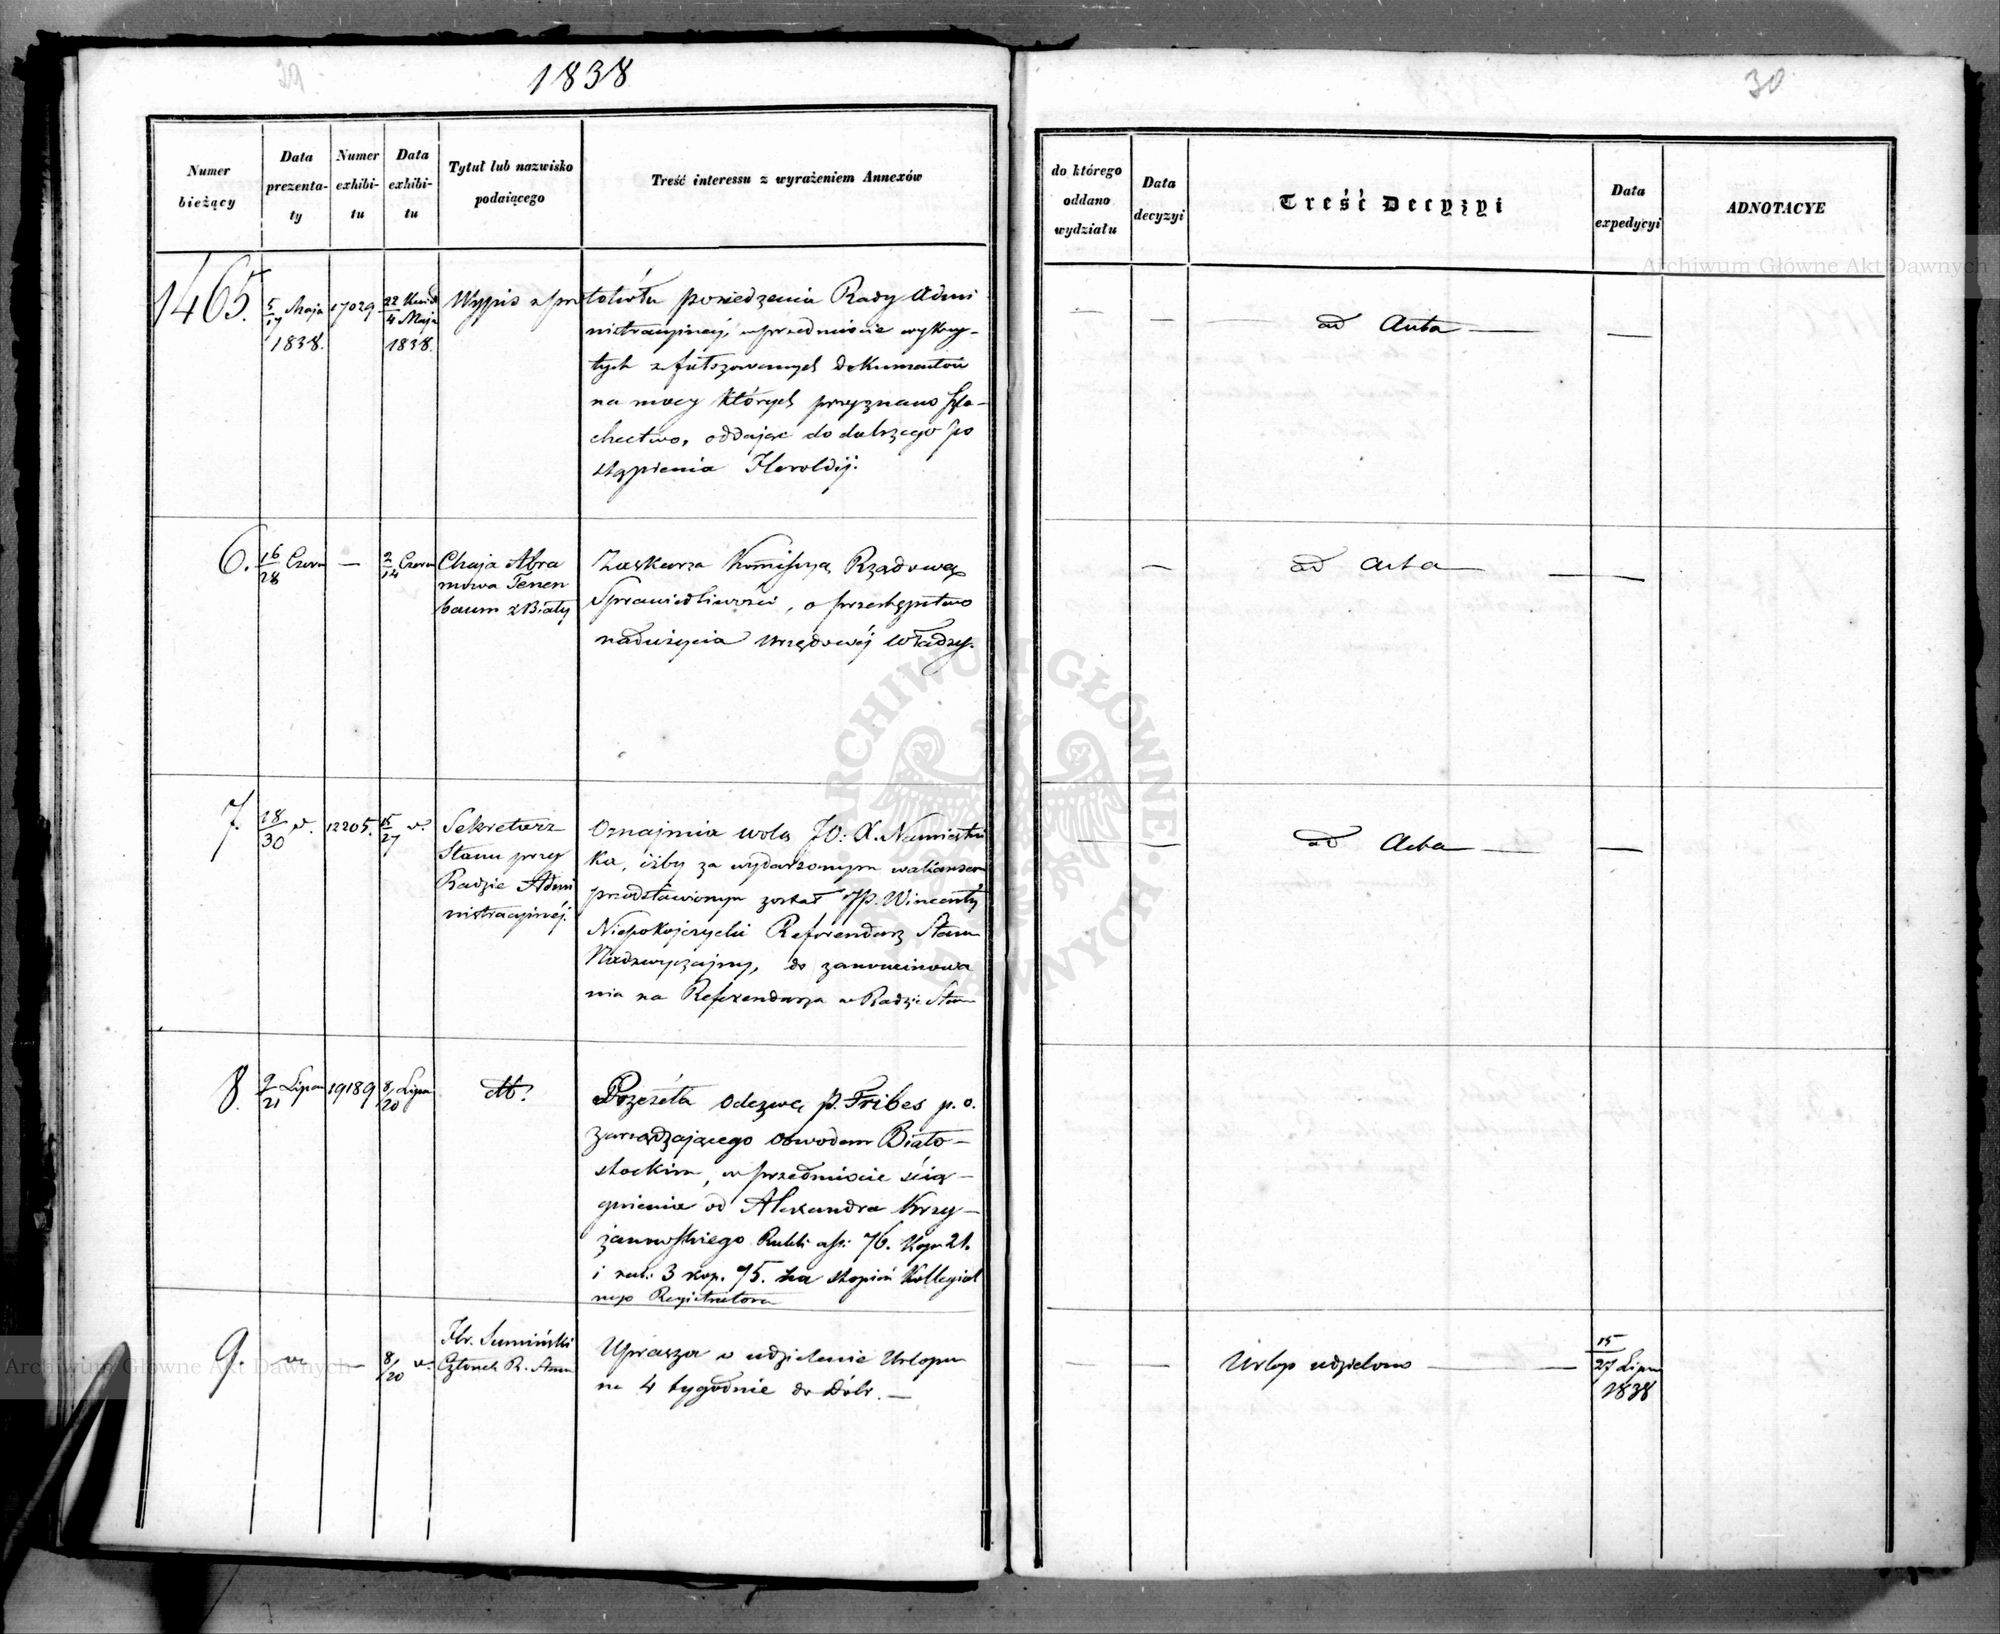 29
1838
Numer bieżący
Data prezenta-ty
Numer exhibi-tu
Data exhibi-tu
Tytuł lub nazwisko podaiącego
Treść interessu z wyrażeniem Annexów
1465. 5/17 Maja 1838. 17029 22 Kwiet/4 Maja 1838.
Wypis z protokółu posiedzenia Rady Admi
nistracyjnej, w przedmiocie wykry-
tych zfałszowanych dokumentów
na mocy których przyznano Szla-
chectwo, oddając do dalszego po
stąpienia Heroldij.
6. 16/28 Czerw — 2/14 Czerw
Chaja Abra
mowa Tenen
baum z Biały
Zaskarza Kommissyą Rządową
Sprawiedliwości, o przestępstwo
nadużycia urzędowéj Władzy.
7. 18/30 v. 12205. 15/27 v.
Sekretarz
Stanu przy
Radzie Admi
nistracyjnéj.
Oznajmia wolą JO: X. Namiestni
ka, iżby za wydarzonym wakansem
przedstawionym został JP. Wincenty
Niepokojczycki Referendarz Stanu
Nadzwyczajny, do zanominowa
nia na Referendarza w Radzie Stanu
8. 9/21 Lipca 19189 8/20 Lipca
dtto.
Przeséła odezwę p. Fribes p. o.
zarządzającego Obwodem Biało-
stockim, w przedmiocie ścią-
gnienia od Alexandra Krzy-
żanowskiego Rubli ass: 76. Kop. 21.
i rub: 3 kop. 75. za stopień Kollegial
nego Registratora
9. v. — 8/20 v.
Hr. Sumiński
Członek R. Stanu
Uprasza o udzielenie Urlopu
na 4 tygodnie do Dóbr. —
30
do którego oddano wydziału
Data decyzyi
Treść Decyzyi
Data expedycyi
ADNOTACYE
— — — ad Acta — —
— ad Acta — —
— — ad Acta — —
— — Urlop udzielono — 15/27 Lipca
1838
Archiwum Główne Akt Dawnych
Archiwum Główne Akt Dawnych
ARCHIWUM GŁÓWNE AKT DAWNYCH